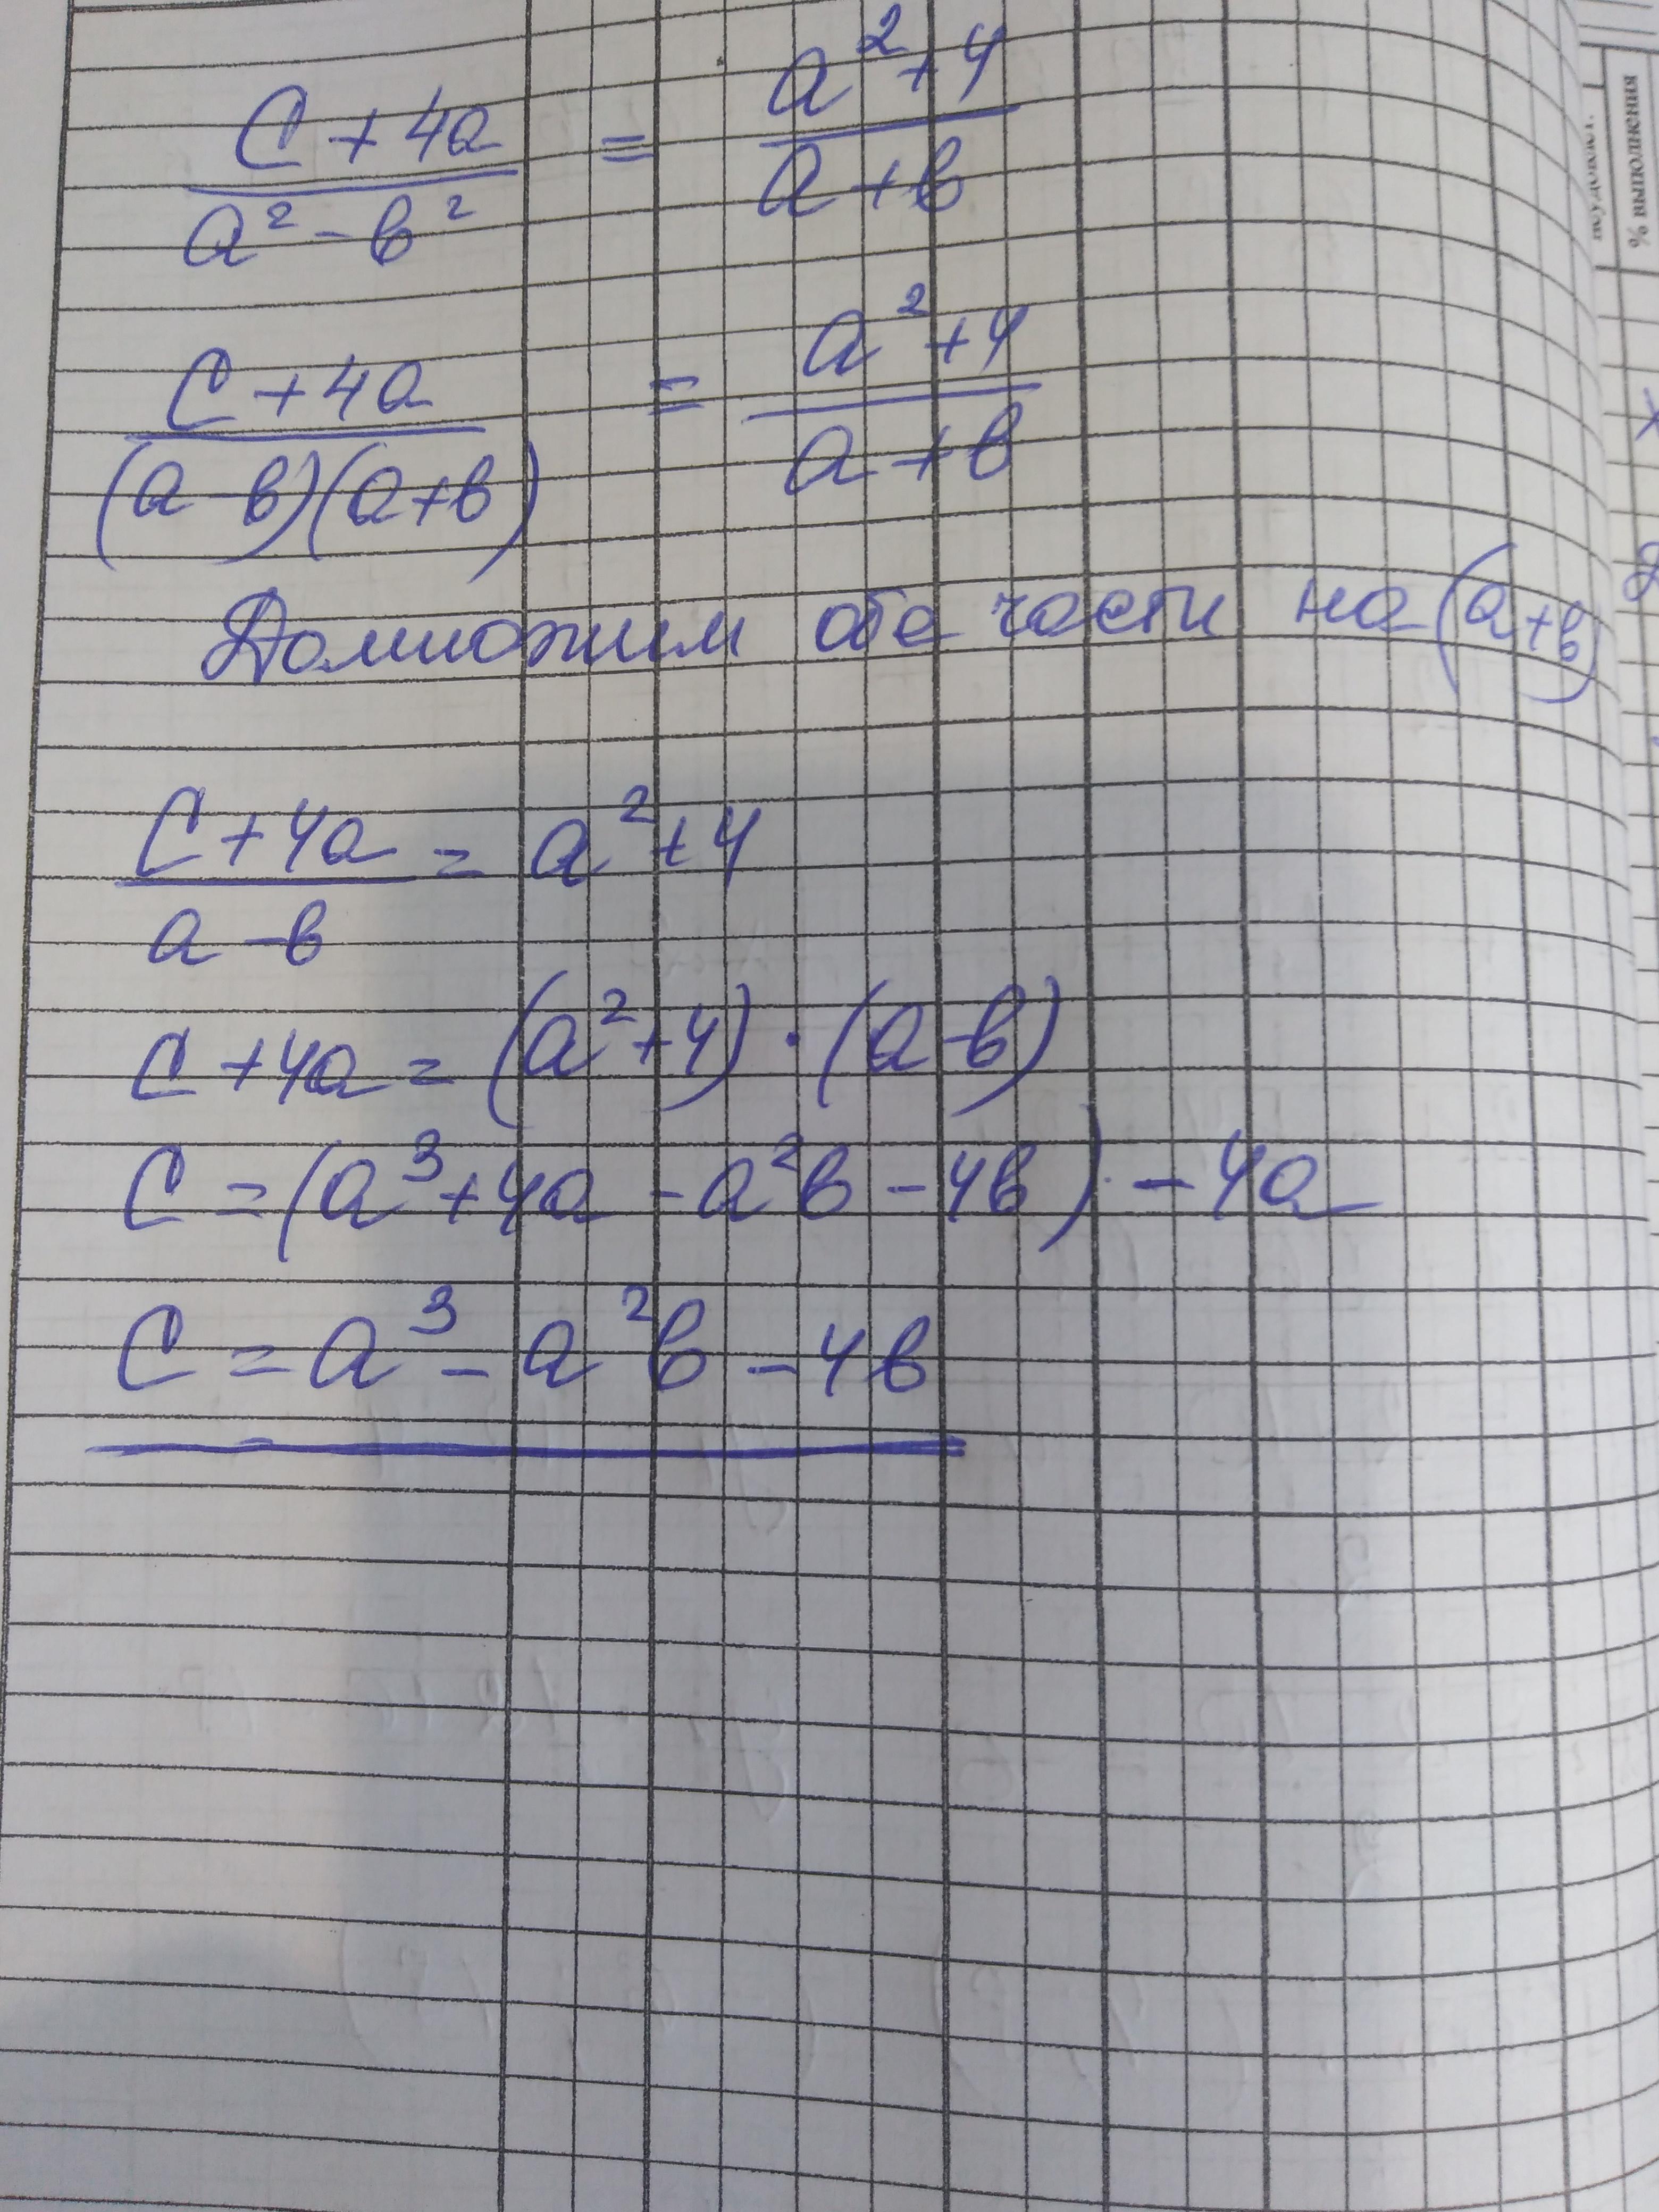 (C + 4a)/(a² - b²) = (a² + 4)/(a + b)
(C + 4a)/((a - b)(a + b)) = (a² + 4)/(a + b)
Домножим обе части на (a+b)
(C + 4a)/(a - b) = a² + 4
C + 4a = (a² + 4) · (a - b)
C = (a³ + 4a - a²b - 4b) - 4a
C = a³ - a²b - 4b
% выполнения